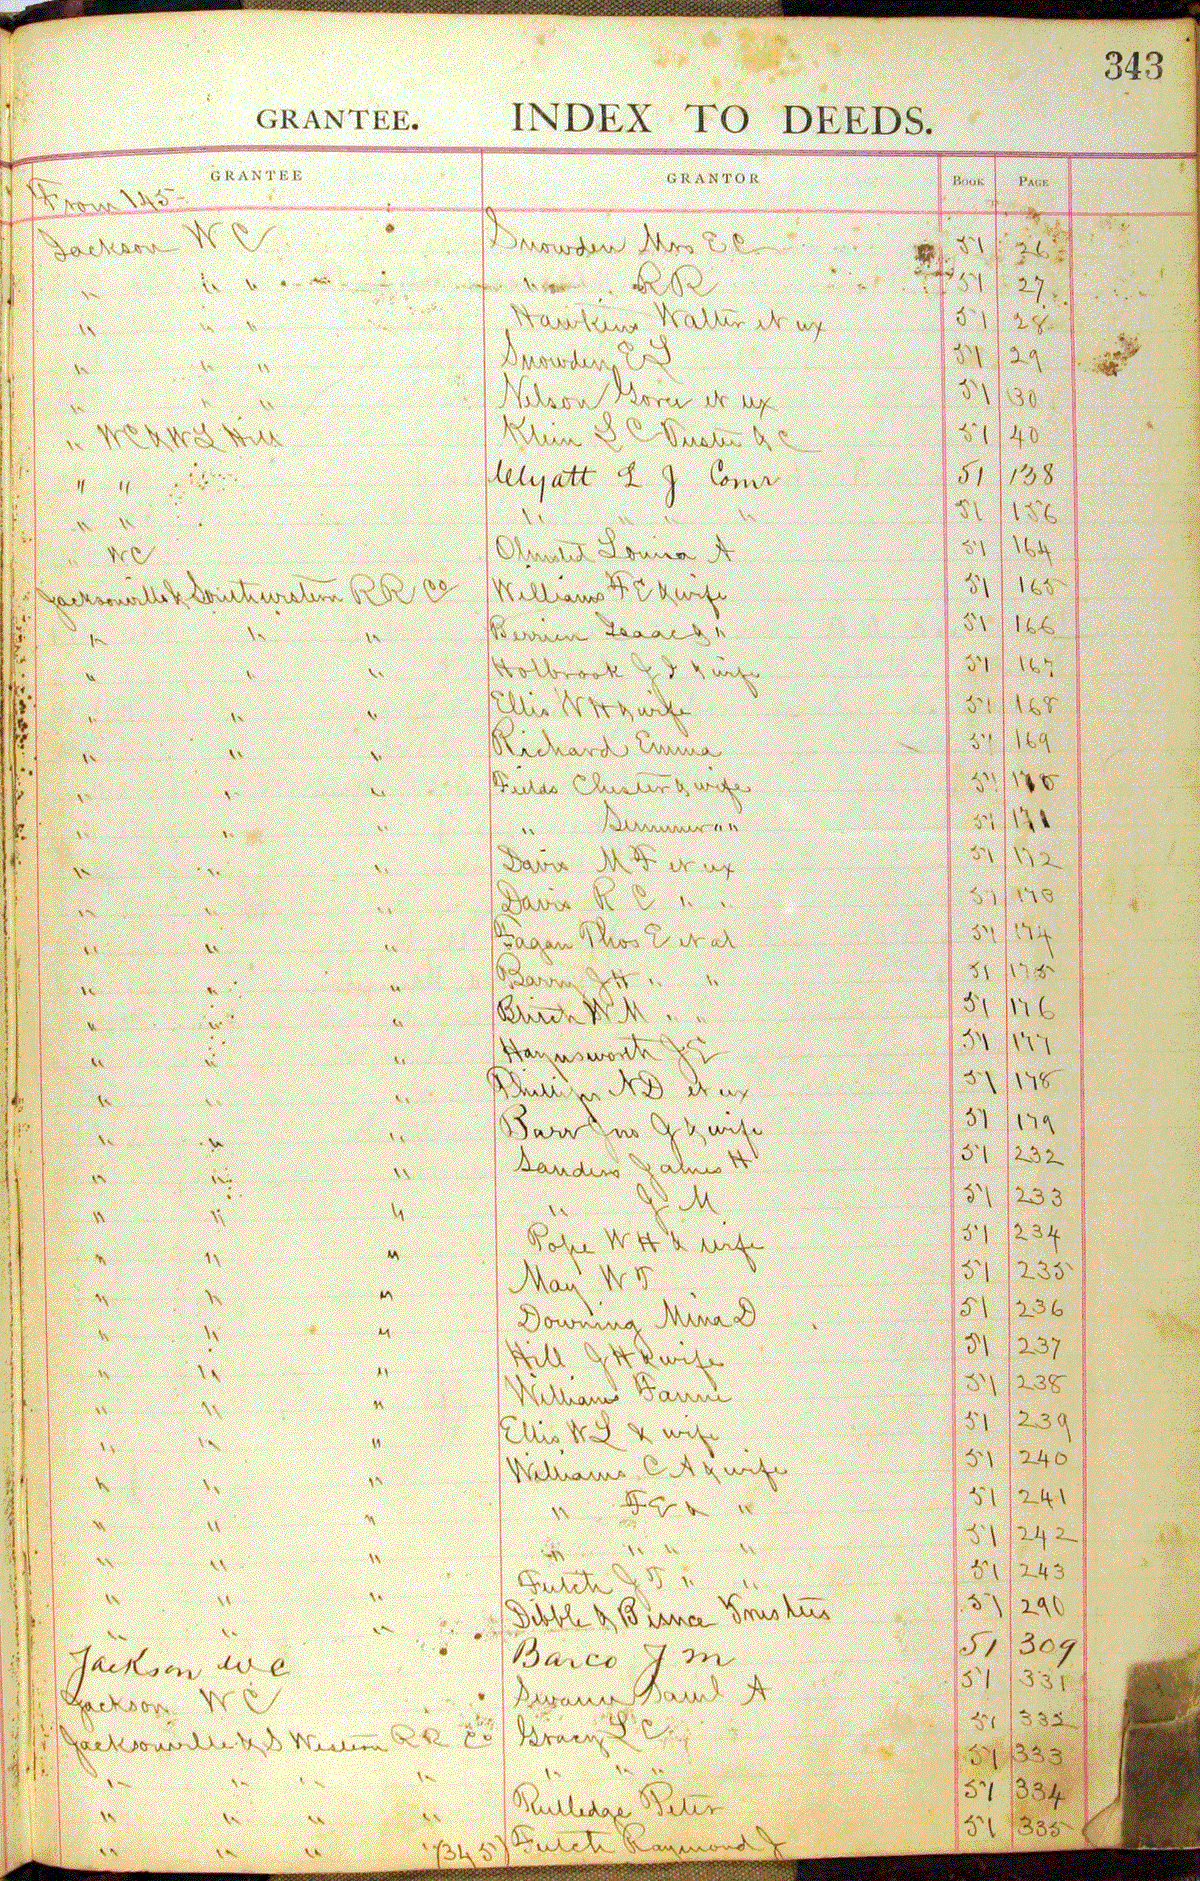 343
GRANTEE. INDEX TO DEEDS.
GRANTEE GRANTOR BOOK PAGE
From 145
Jackson W C Snowden Mrs E C 51 26
" " " " R R 51 27
" " " Hawkins Walter et ux 51 28
" " " Snowden E L 51 29
" " " Nelson et ux 51 30
" W C & W L Hill Klein L C &c 51 40
" " Wyatt L J Comr 51 138
" " " " " " 51 156
" W C Olmsted Louisa A 51 164
Jacksonville & Southwestern R R Co Williams F E & wife 51 165
" " " Berrien Isaac & " 51 166
" " " Holbrook J I & wife 51 167
" " " Ellis W H & wife 51 168
" " " Richard Emma 51 169
" " " Fields Chester & wife 51 170
" " " " Summer " " 51 171
" " " Davis M F et ux 51 172
" " " Davis R C " " 51 173
" " " Fagan Thos E et al 51 174
" " " Barry J H " " 51 175
" " " Birtch W M " " 51 176
" " " Haynsworth J E 51 177
" " " Phillips N D et ux 51 178
" " " Barr Jno G & wife 51 179
" " " Sanders James H 51 232
" " " " J M 51 233
" " " Pope W H & wife 51 234
" " " May W T 51 235
" " " Downing Mina D 51 236
" " " Hill J H & wife 51 237
" " " Williams Fannie 51 238
" " " Ellis W L & wife 51 239
" " " Williams C A & wife 51 240
" " " " F E & " 51 241
" " " " " " " 51 242
" " " Futch J T " " 51 243
" " " Dibble & Bisnce Trustees 51 290
Jackson W C Barco J M 51 309
Jackson W C Swann Saml A 51 331
Jacksonville & S Western R R Co Gracy L C 51 332
" " " " " " " 51 333
" " " " Rutledge Peter 51 334
" " " " (345) Futch Raymond J 51 335